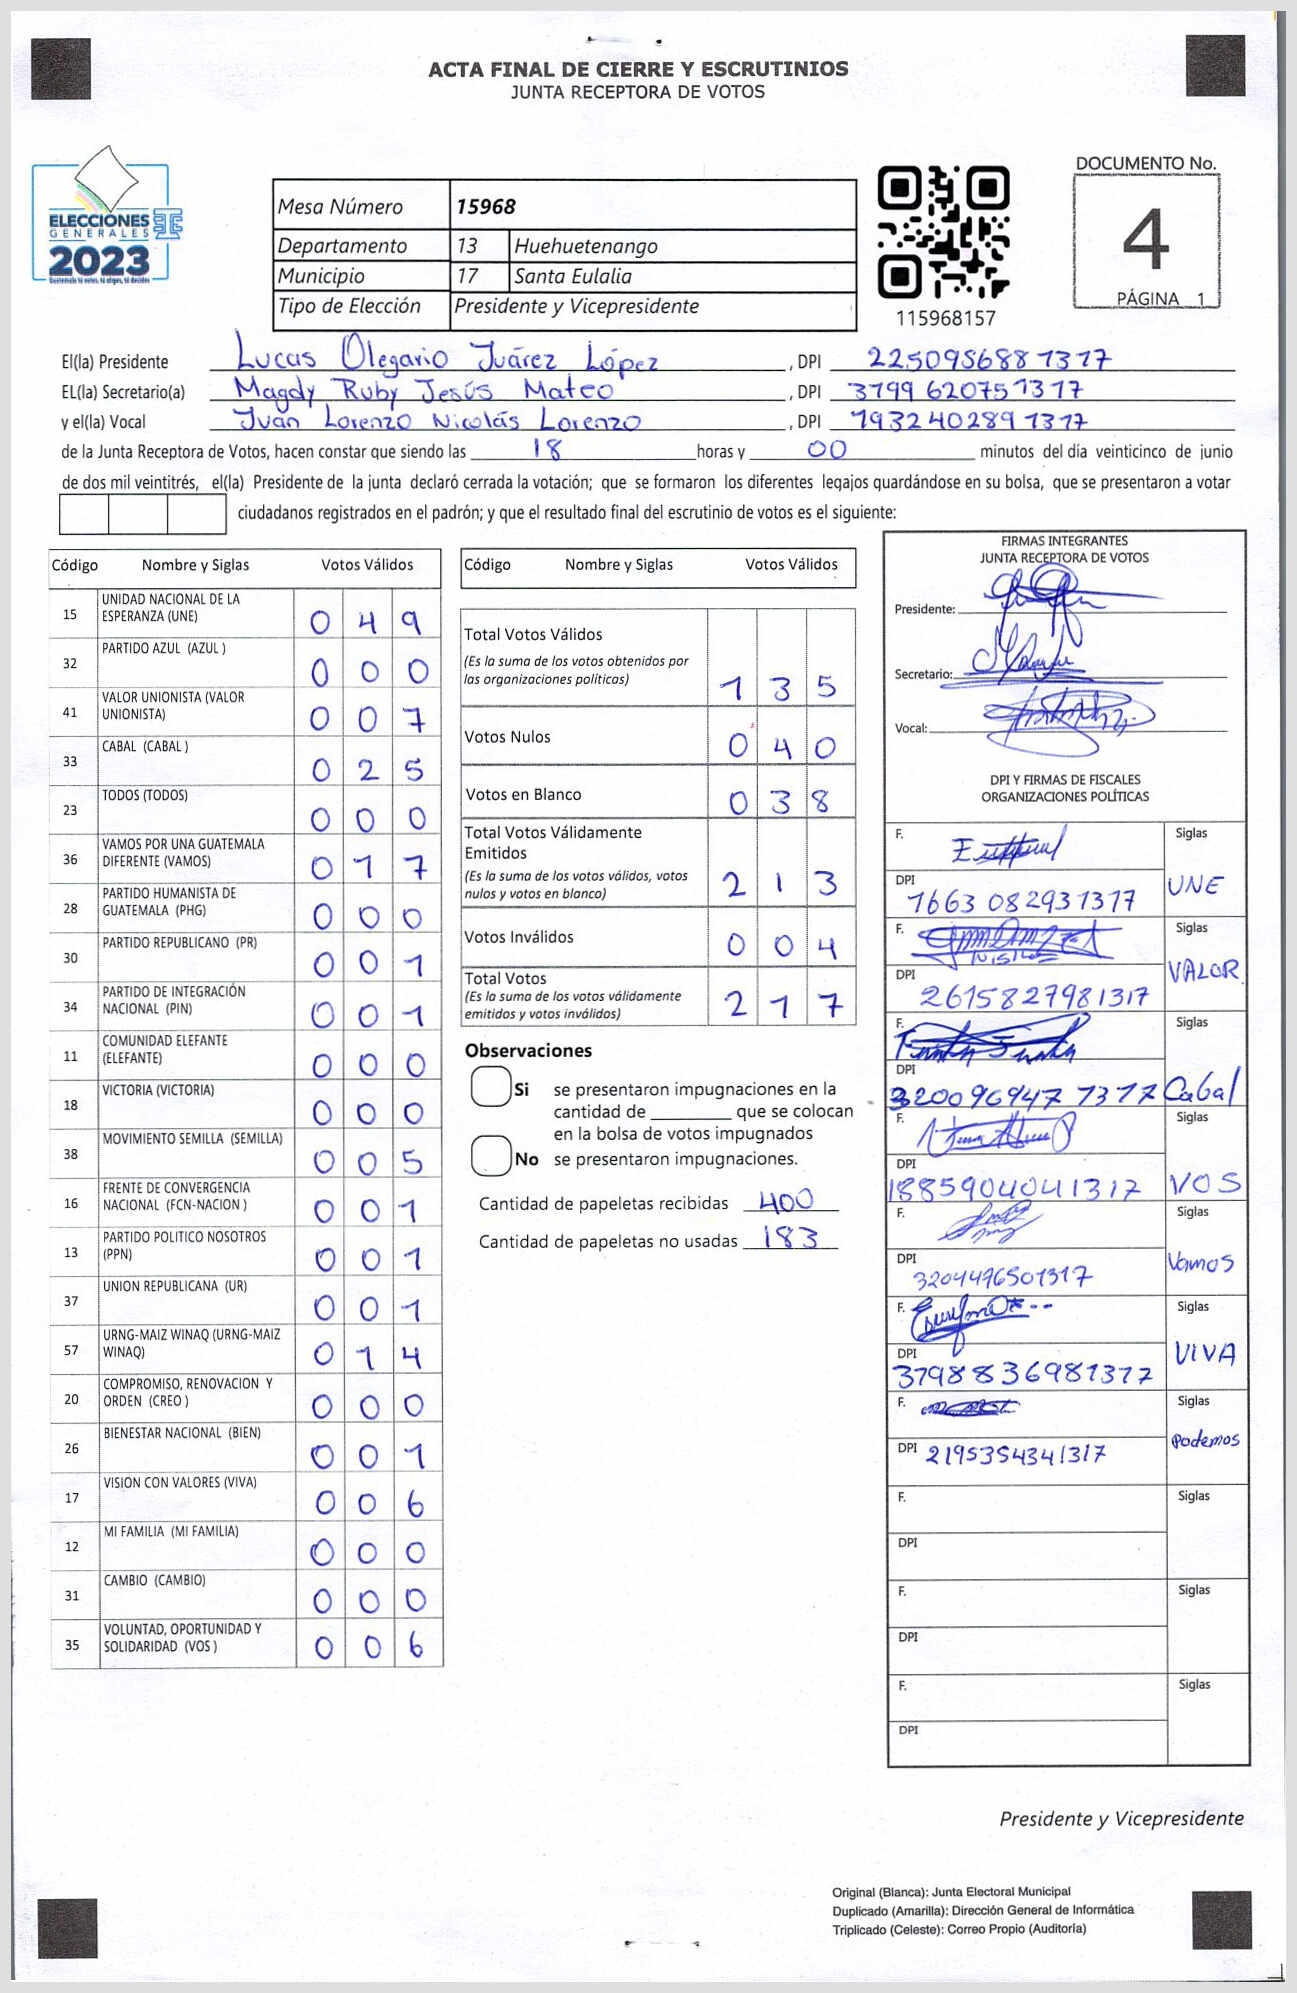 ACTA FINAL DE CIERRE Y ESCRUTINIOS
JUNTA RECEPTORA DE VOTOS
ELECCIONES
GENERALES
2023
Mesa Número 15968
Departamento 13 Huehuetenango
Municipio 17 Santa Eulalia
Tipo de Elección Presidente y Vicepresidente
115968157
DOCUMENTO No.
4
PÁGINA 1
El(la) Presidente Lucas Olegario Juárez López, DPI 2250956881317
EL(la) Secretario(a) Magdy Ruby Jesús Mateo, DPI 3799620751317
y el(la) Vocal Juan Lorenzo Nicolás Lorenzo, DPI 1932402891317
de la Junta Receptora de Votos, hacen constar que siendo las 18 horas y 00 minutos del día veinticinco de junio
de dos mil veintitrés, el(la) Presidente de la junta declaró cerrada la votación; que se formaron los diferentes legajos guardándose en su bolsa, que se presentaron a votar
ciudadanos registrados en el padrón; y que el resultado final del escrutinio de votos es el siguiente:
Código Nombre y Siglas Votos Válidos
15 UNIDAD NACIONAL DE LA
ESPERANZA (UNE) 0 4 9
32 PARTIDO AZUL (AZUL ) 0 0 0
41 VALOR UNIONISTA (VALOR
UNIONISTA) 0 0 7
33 CABAL (CABAL ) 0 2 5
23 TODOS (TODOS) 0 0 0
36 VAMOS POR UNA GUATEMALA
DIFERENTE (VAMOS) 0 1 7
28 PARTIDO HUMANISTA DE
GUATEMALA (PHG) 0 0 0
30 PARTIDO REPUBLICANO (PR) 0 0 1
34 PARTIDO DE INTEGRACIÓN
NACIONAL (PIN) 0 0 1
11 COMUNIDAD ELEFANTE
(ELEFANTE) 0 0 0
18 VICTORIA (VICTORIA) 0 0 0
38 MOVIMIENTO SEMILLA (SEMILLA) 0 0 5
16 FRENTE DE CONVERGENCIA
NACIONAL (FCN-NACION ) 0 0 1
13 PARTIDO POLITICO NOSOTROS
(PPN) 0 0 1
37 UNION REPUBLICANA (UR) 0 0 1
57 URNG-MAIZ WINAQ (URNG-MAIZ
WINAQ) 0 1 4
20 COMPROMISO, RENOVACION Y
ORDEN (CREO ) 0 0 0
26 BIENESTAR NACIONAL (BIEN) 0 0 1
17 VISION CON VALORES (VIVA) 0 0 6
12 MI FAMILIA (MI FAMILIA) 0 0 0
31 CAMBIO (CAMBIO) 0 0 0
35 VOLUNTAD, OPORTUNIDAD Y
SOLIDARIDAD (VOS ) 0 0 6
Código Nombre y Siglas Votos Válidos
Total Votos Válidos
(Es la suma de los votos obtenidos por
las organizaciones políticas) 1 3 5
Votos Nulos 0 4 0
Votos en Blanco 0 3 8
Total Votos Válidamente
Emitidos
(Es la suma de los votos válidos, votos
nulos y votos en blanco) 2 1 3
Votos Inválidos 0 0 4
Total Votos
(Es la suma de los votos válidamente
emitidos y votos inválidos) 2 1 7
Observaciones
Si se presentaron impugnaciones en la
cantidad de ________ que se colocan
en la bolsa de votos impugnados
No se presentaron impugnaciones.
Cantidad de papeletas recibidas 400
Cantidad de papeletas no usadas 183
FIRMAS INTEGRANTES
JUNTA RECEPTORA DE VOTOS
Presidente:
Secretario:
Vocal:
DPI Y FIRMAS DE FISCALES
ORGANIZACIONES POLÍTICAS
F. Siglas
DPI 1663 082931317 UNE
F. Siglas
DPI 2615827981317 VALOR
F. Siglas
DPI 3200969471317 Cabal
F. Siglas
DPI 1885904041317 VOS
F. Siglas
DPI 3204496501317 Vamos
F. Siglas
DPI 3798836981317 VIVA
F. Siglas
DPI 2195354341317 Podemos
F. Siglas
DPI
F. Siglas
DPI
F. Siglas
DPI
Presidente y Vicepresidente
Original (Blanca): Junta Electoral Municipal
Duplicado (Amarilla): Dirección General de Informática
Triplicado (Celeste): Correo Propio (Auditoría)